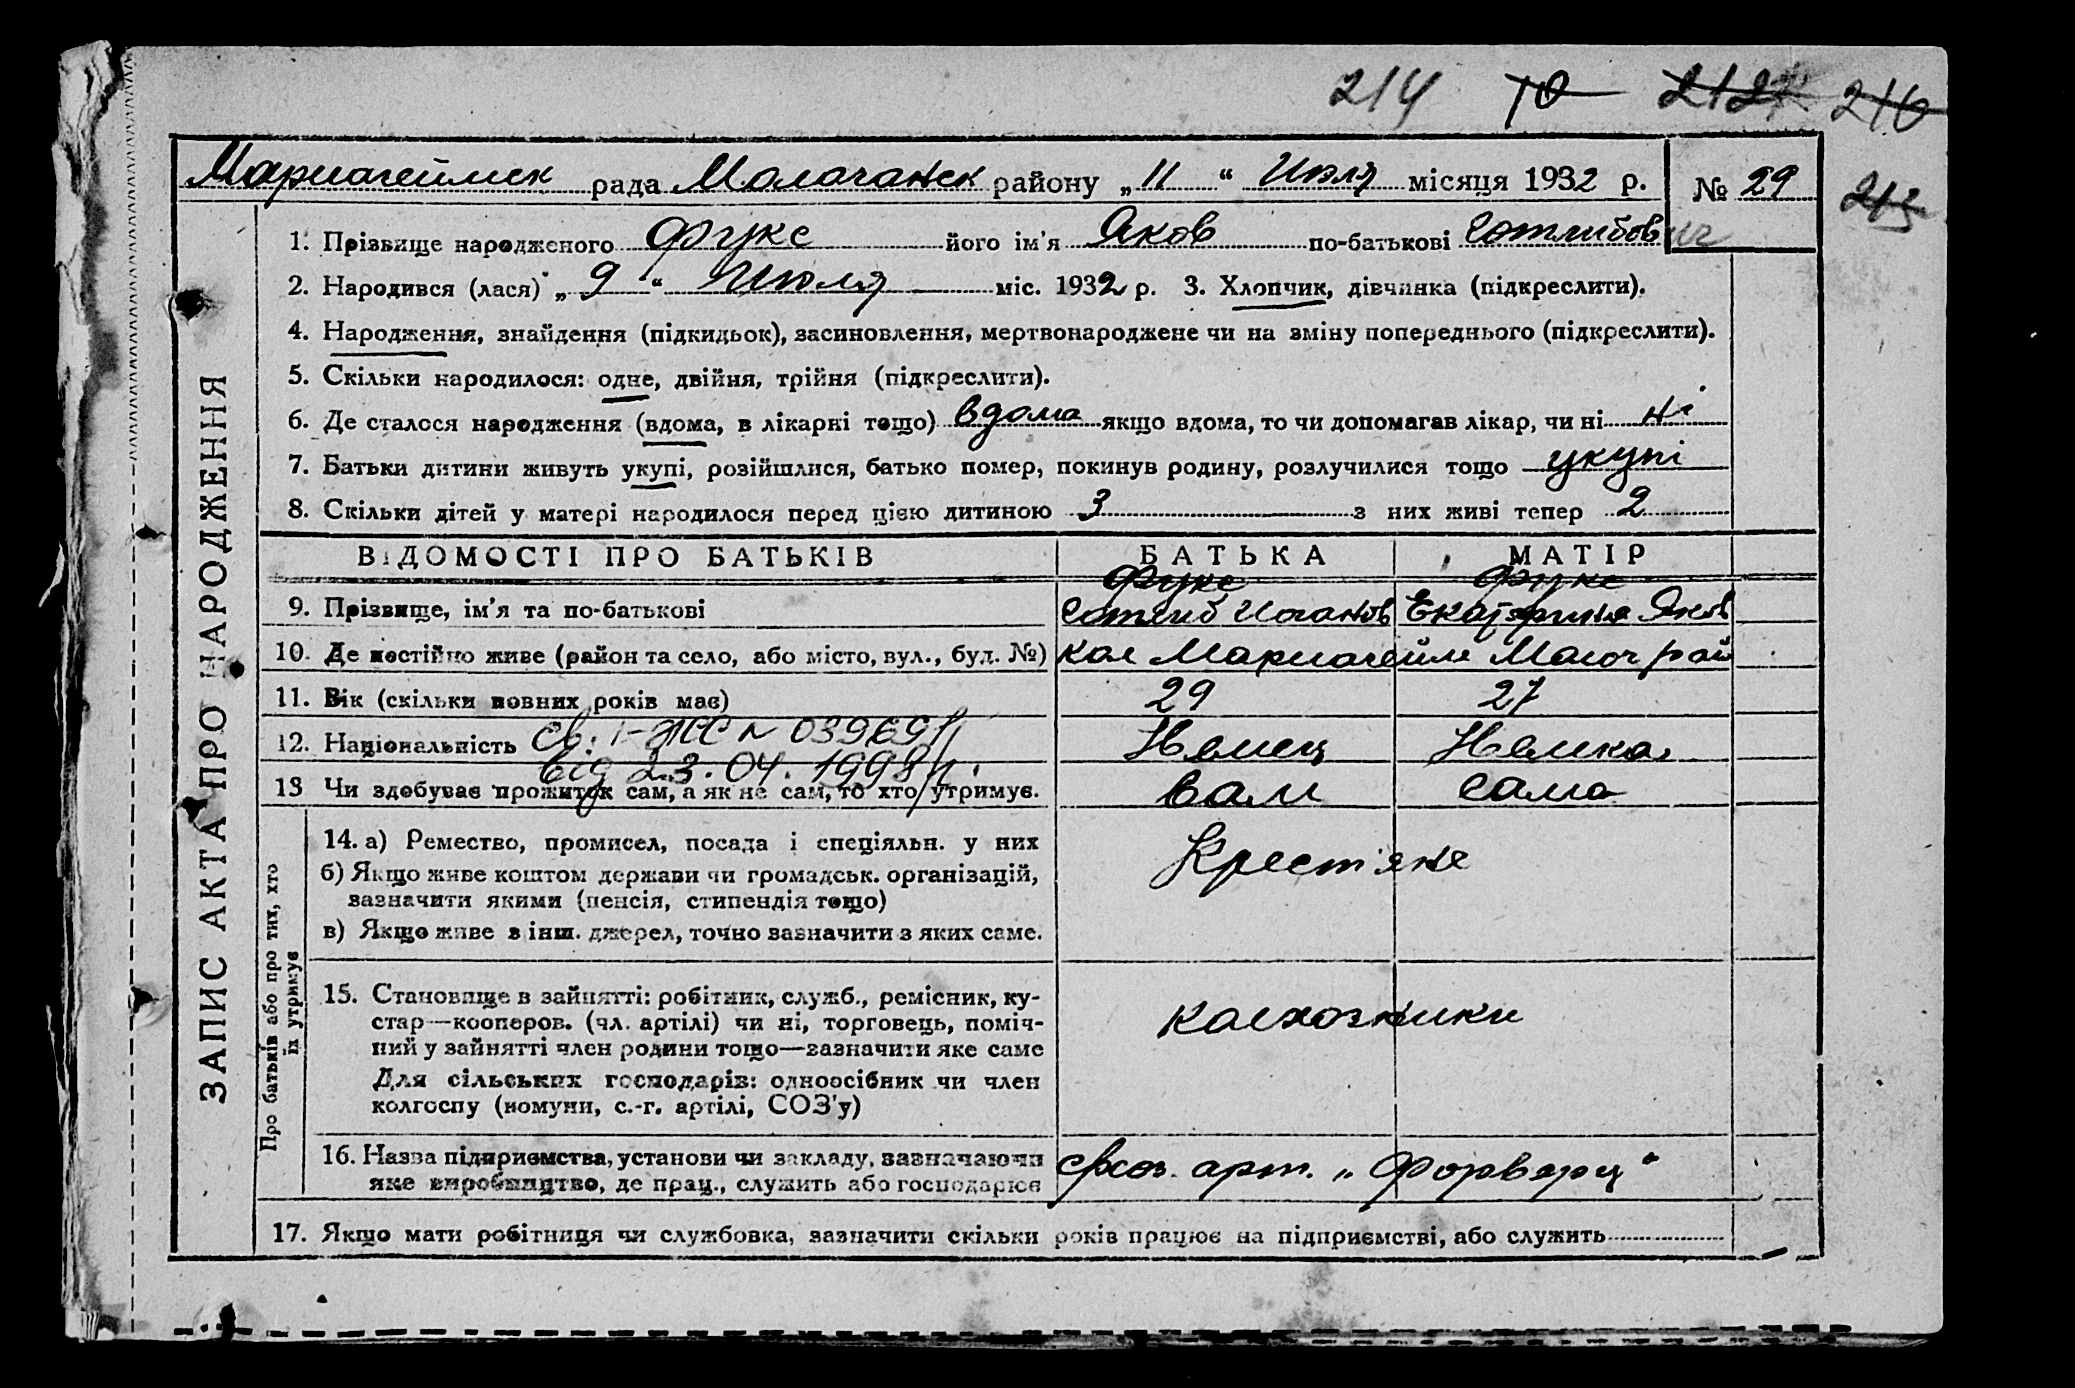 214 10 212 210
Мариагеймск рада Молочанск району „ 11 “ Июля місяця 1932 р. № 29
213
1. Прізвище народженого Фукс його ім’я Яков по-батькові Готлибович
2. Народився (лася) „ 9 “ Июля міс. 1932 р. 3. Хлопчик, дівчинка (підкреслити).
4. Народження, знайдення (підкидьок), засиновлення, мертвонароджене чи на зміну попереднього (підкреслити).
5. Скільки народилося: одне, двійня, трійня (підкреслити).
6. Де сталося народження (вдома, в лікарні тощо) вдома якщо вдома, то чи допомагав лікар, чи ні ні
7. Батьки дитини живуть укупі, розійшлися, батько помер, покинув родину, розлучилися тощо укупі
8. Скільки дітей у матері народилося перед цією дитиною 3 з них живі тепер 2
ЗАПИС АКТА ПРО НАРОДЖЕННЯ
ВІДОМОСТІ ПРО БАТЬКІВ БАТЬКА МАТІР
Фукс Фукс
9. Прізвище, ім’я та по-батькові Готлиб Иоганов Екатерина Яков
10. Де постійно живе (район та село, або місто, вул., буд. №) Кол Мариагейм Молоч рай
11. Вік (скільки повних років має) 29 27
12. Національність Св. І-ЖС № 039691 Немец Немка
від 23.04.1998р.
13 Чи здобуває прожиток сам, а як не сам, то хто утримує. Сам Сама
Про батьків або про тих, хто
їх утримує
14. а) Ремество, промисел, посада і спеціяльн. у них Крестяне
б) Якщо живе коштом держави чи громадськ. організацій,
зазначити якими (пенсія, стипендія тощо)
в) Якщо живе з інш. джерел, точно зазначити з яких саме.
15. Становище в зайнятті: робітник, служб., ремісник, ку-
стар—кооперов. (чл. артілі) чи ні, торговець, поміч- колхозники
ний у зайнятті член родини тощо—зазначити яке саме
Для сільських господарів: одноосібник чи член
колгоспу (комуни, с.-г. артілі, СОЗ’у)
16. Назва підприємства, установи чи закладу, зазначаючи арт. „Форверц“
яке виробництво, де прац., служить або господарює
17. Якщо мати робітниця чи службовка, зазначити скільки років працює на підприємстві, або служить